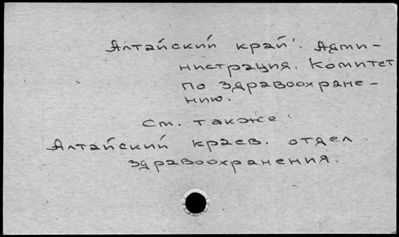 Алтайский край. Адми-
нистрация. Комитет
по здравоохране-
нию.
См. также:
Алтайский краев. отдел
здравоохранения.